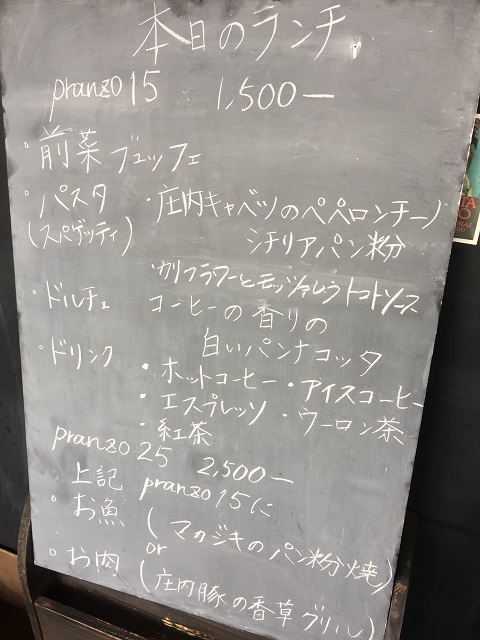 本日のランチ
pranzo 15 1,500ー
・前菜 ブュッフェ
・パスタ ・庄内キャベツのペペロンチーノ
(スパゲッティ) シチリアパン粉
・カリフラワーとモッツァレラトマトソース
・ドルチェ コーヒーの香りの
白いパンナコッタ
・ドリンク
・ホットコーヒー ・アイスコーヒー
・エスプレッソ ・ウーロン茶
・紅茶
pranzo 25 2,500ー
上記 pranzo 15に
・お魚 (マカジキのパン粉焼)
or
・お肉 (庄内豚の香草グリル)